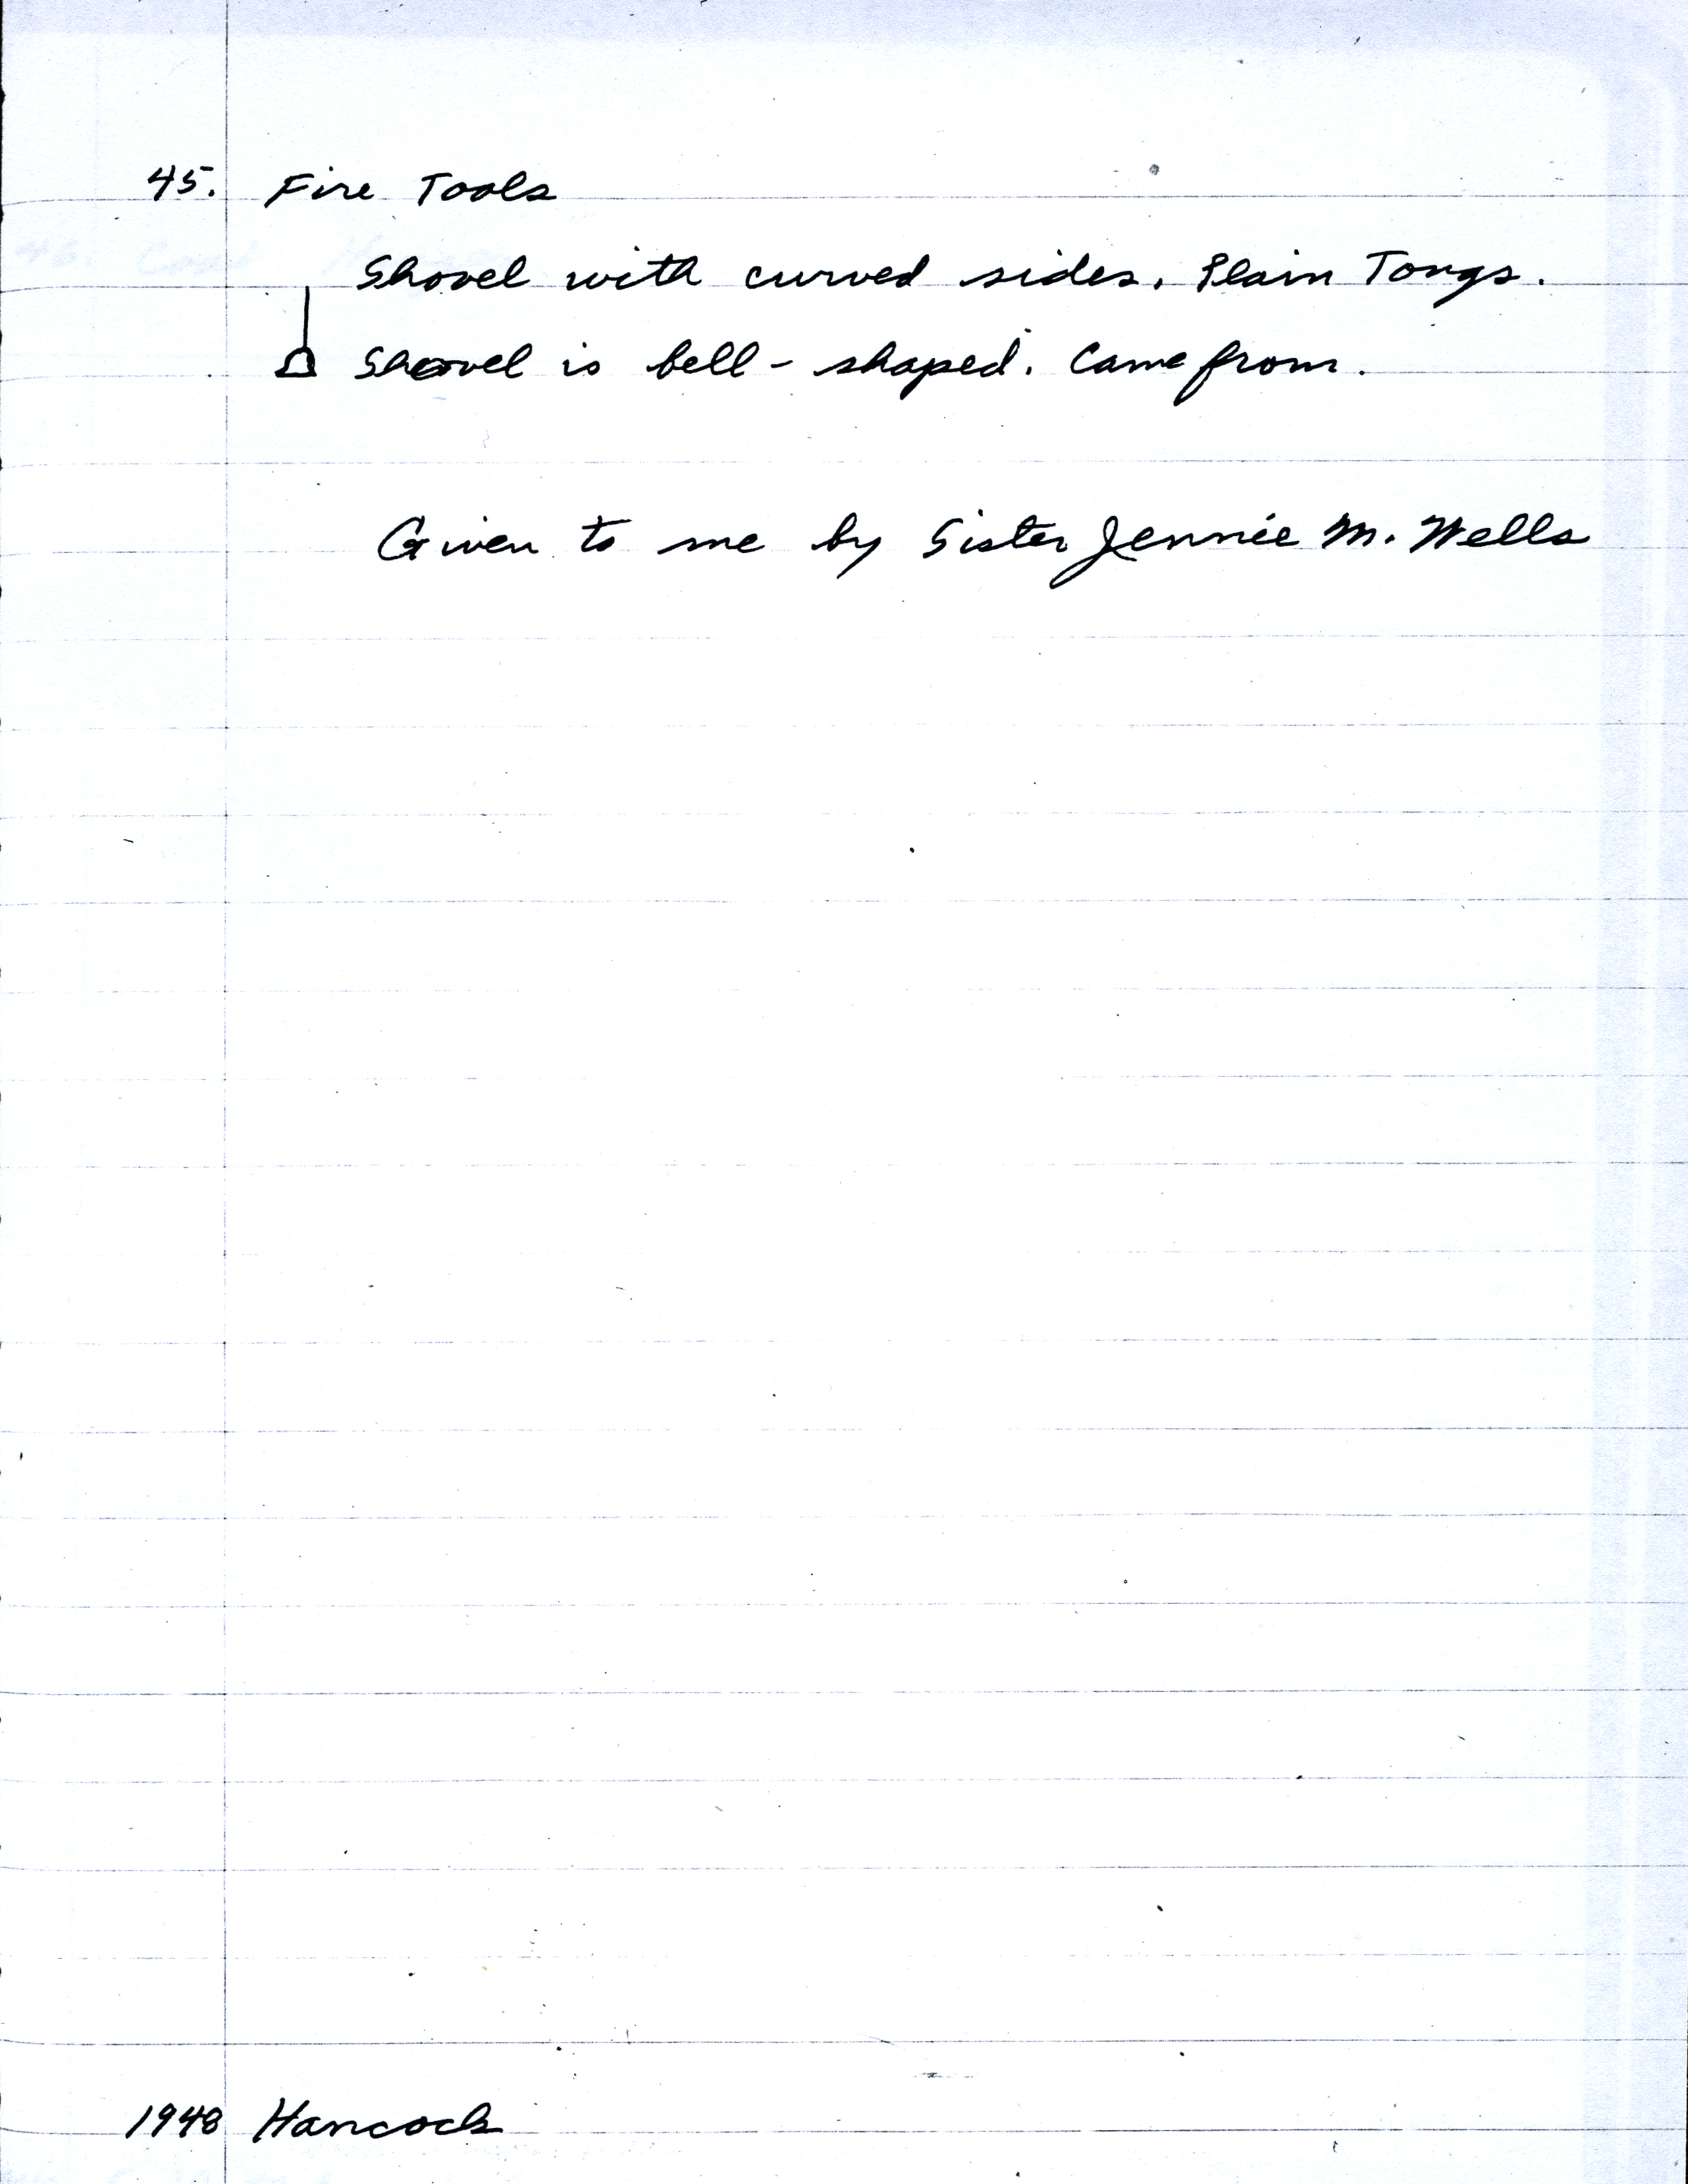 45. Fire Tools
Shovel with curved sides. Plain Tongs.
Shovel is bell-shaped. Came from.
Given to me by Sister Jennie M. Wells
1948 Hancock